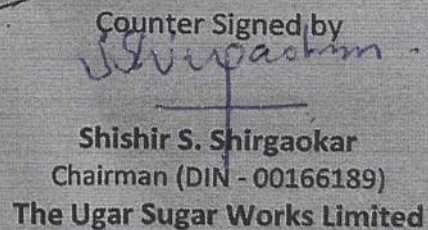 Counter Signed by
Shishir S. Shirgaokar
Chairman (DIN - 00166189)
The Ugar Sugar Works Limited